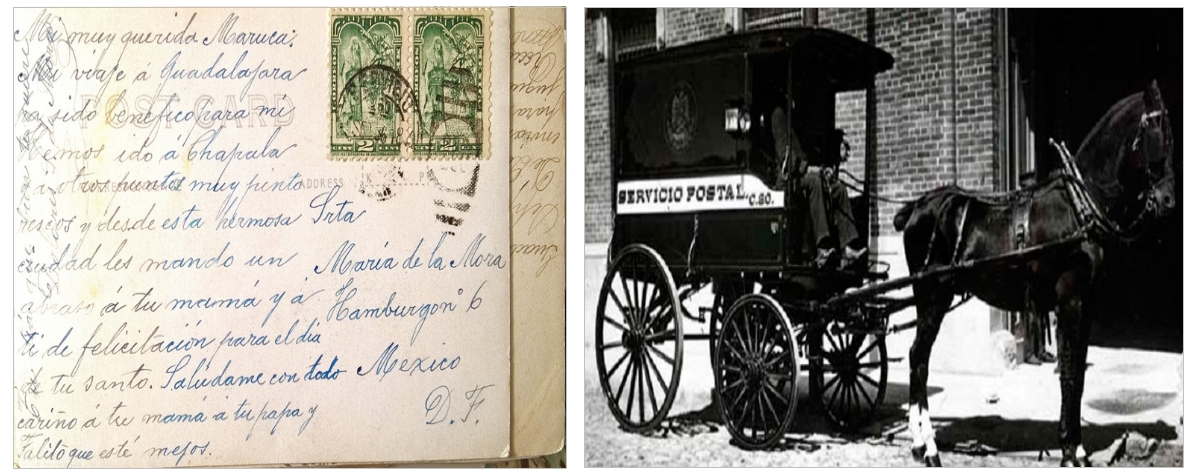 Mi muy querida Maruca:
Mi viaje á Guadalajara
ha sido benefico para mi
Hemos ido a Chapala
y a otros puntos muy pinto
rescos y desde esta hermosa
ciudad les mando un
abraso á tu mamá y á
ti de felicitación para el dia
de tu santo. Salúdame con todo
cariño á tu mamá a tu papa y
Lalito que esté mejor.
POST CARD
ADDRESS
2 2
Srta
María de la Mora
Hamburgo nº 6
Mexico
D. F.
SERVICIO POSTAL.
C.SO.